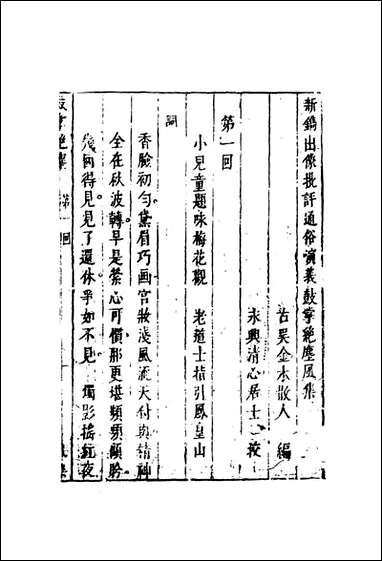 新鐫出像批評通俗演義鼓掌絕塵風集
古吳金木散人　編
永興清心居士　校
第一回
小兒童題咏梅花觀　老道士指引鳳皇山
詞
香臉初勻黛眉巧画宮妝淺風流天付與精神
全在秋波轉早是縈心可慣那更堪頻頻顧盼
幾回得見見了還休爭如不見　燭影搖紅夜
第一回